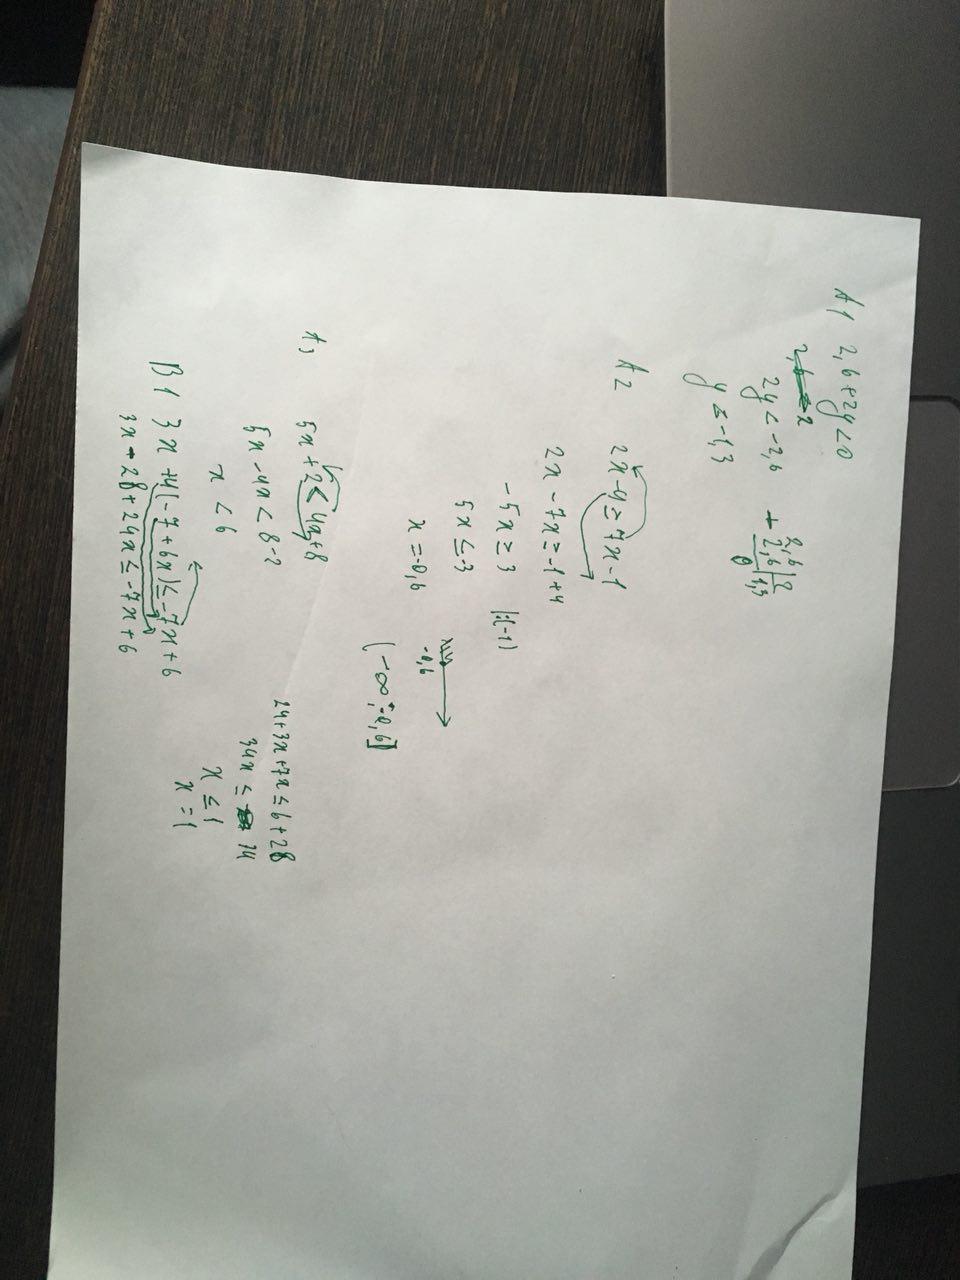 A1 2,6+2y<0
2y<-2,6
y≤-1,3
2,6|2
2,6|1,3
0
A2 2x-4≥7x-1
2x-7x≥-1+4
-5x≥3 |:(-1)
5x≤-3
x=-0,6
-0,6
(-∞;-0,6]
A3 5x+2<4x+8
5x-4x<8-2
x<6
B1 3x+4(-7+6x)≤-7x+6
3x-28+24x≤-7x+6
24+3x+7x≤6+28
34x≤34
x≤1
x=1